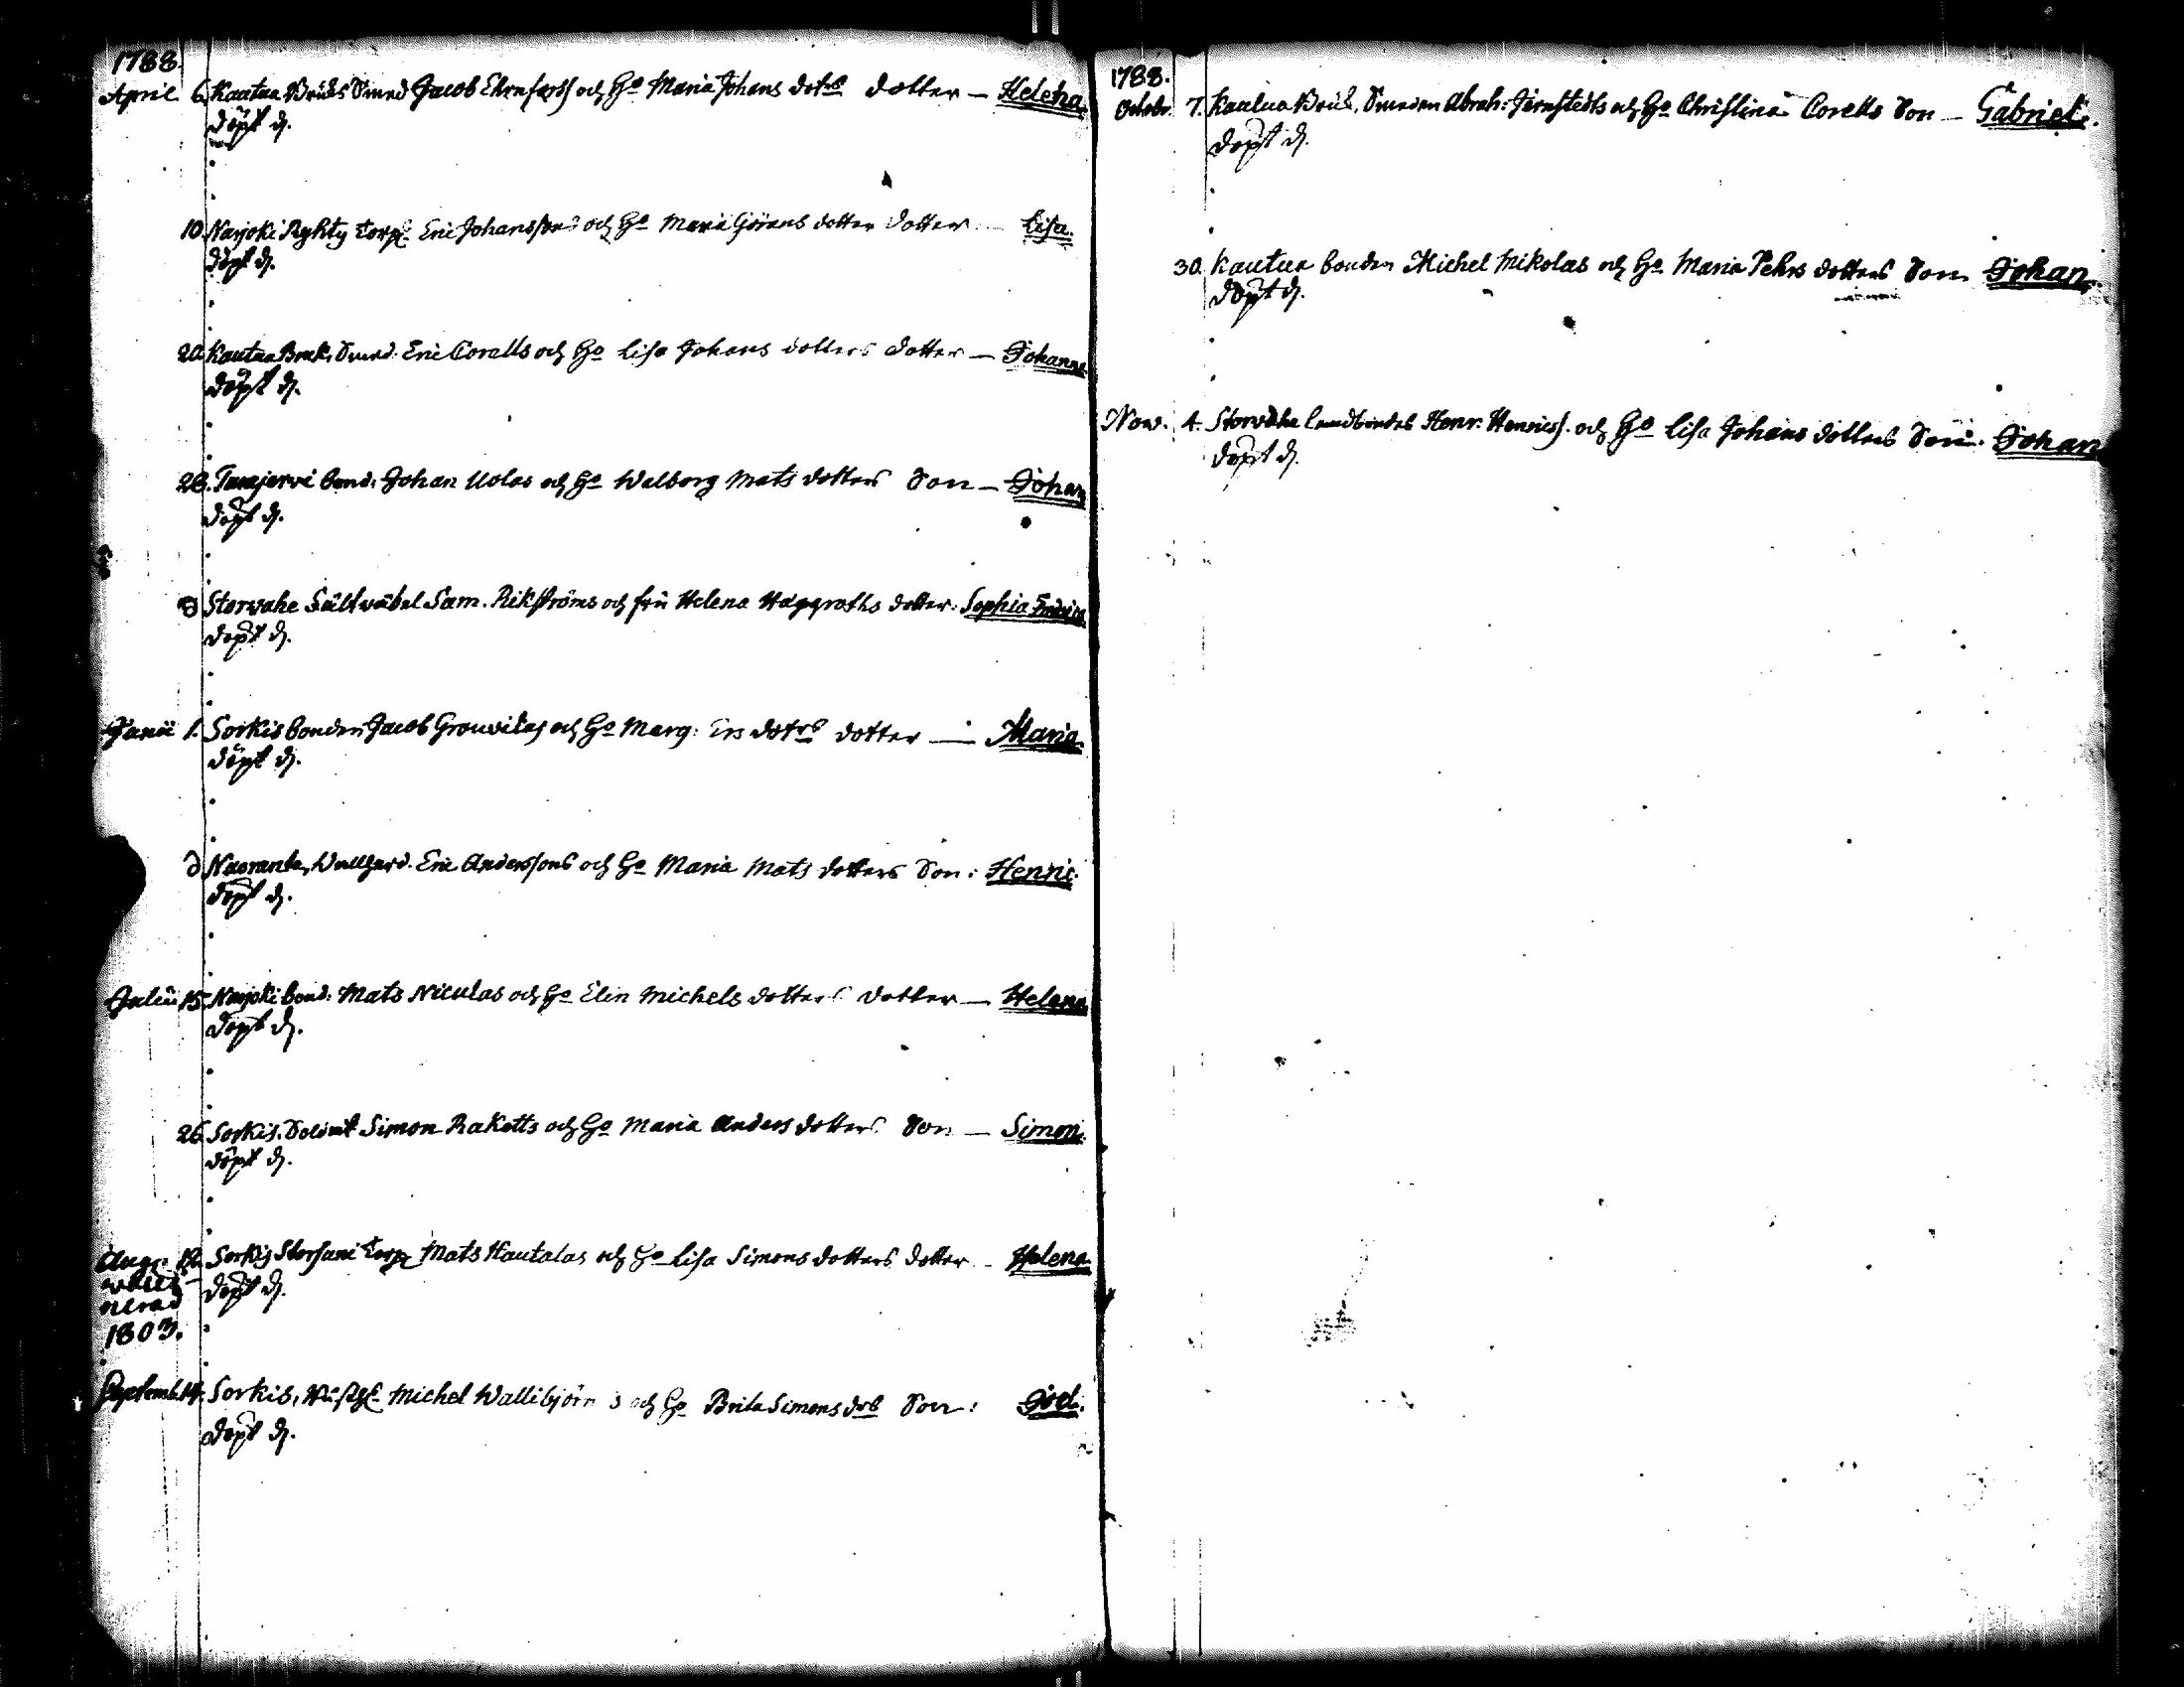 1788.
April 6. Kautua Bruks Smed Jacob Ehrnfors och Ho Maria Johans dotrs dotter — Helena
döpt d.
10. Narjoki Torp. Eric Johanssons och Ho Maria Görans dotter dotter — Lisa.
döpt d.
20. Kautua Bruk, Smed. Eric Corells och Ho Lisa Johans dotters dotter — Johanna
döpt d.
28. bond. Johan Uolas och Ho Walborg Mats dotters Son — Johan
döpt d.
Storvahe Sam. Rikströms och fru Helena Haggroths dotter: Sophia
döpt d.
Junii 1. Sorkis bonden Jacob och Ho Marg: Ers dotrs dotter — Maria.
döpt d.
d Eric Anderssons och Ho Maria Mats dotters Son: Henric.
döpt d.
Julii 15. Narjoki bond: Mats Niculas och Ho Elin Michels dotters dotter — Helena
döpt d.
26. Sorkis. Simon Raketts och Ho Maria Anders dotters Son — Simon.
döpt d.
Aug. Sorkis Storsani Torp. Mats Hautalas och Ho Lisa Simons dotters dotter — Helena
döpt d.
1803.
Septemb. 14. Sorkis, Michel Wallibjörns och Ho Brita Simons drs Son: Joel.
döpt d.
1788.
Octobr. 7. Kautua Bruk, Smeden Abrah: Jernstedts och Ho Christina Corells Son — Gabriel.
döpt d.
30. Kautua bonden Michel Mikolas och Ho Maria Pehrs dotters Son Johan.
döpt d.
Nov. 4. Storvahe Landbondes Henr. Henricss. och Ho Lisa Johans dotters Son. Johan
döpt d.